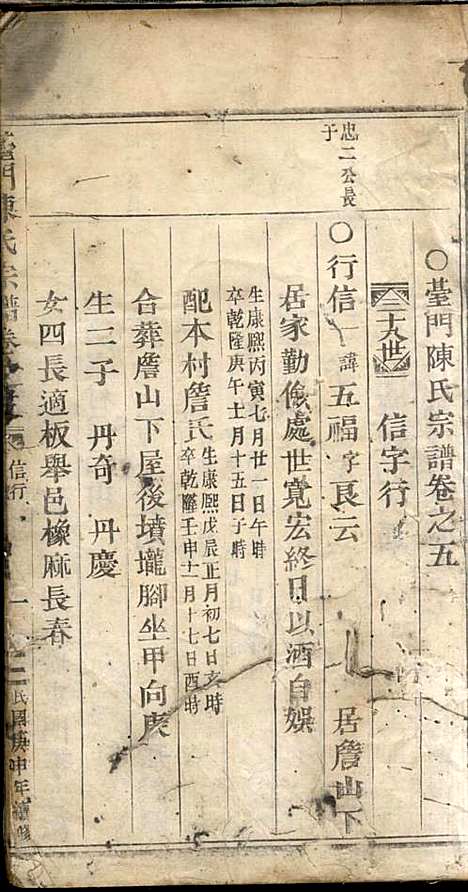 〇臺門陳氏宗譜卷之五
二十九世 信字行
忠二公長子
〇行信一 諱五福字良云 居詹山下
居家勤儉處世寬宏終日以酒自娛
生康熙丙寅七月廿一日午時
卒乾隆庚午十一月十五日子時
配本村詹氏
生康熙戊辰正月初七日亥時
卒乾隆壬申十一月十七日酉時
合葬詹山下屋後墳壠腳坐甲向庚
生二子 丹奇 丹慶
女四長適板舉邑橡麻長春
臺門陳氏宗譜卷之五 信行 一 民國庚申年續修